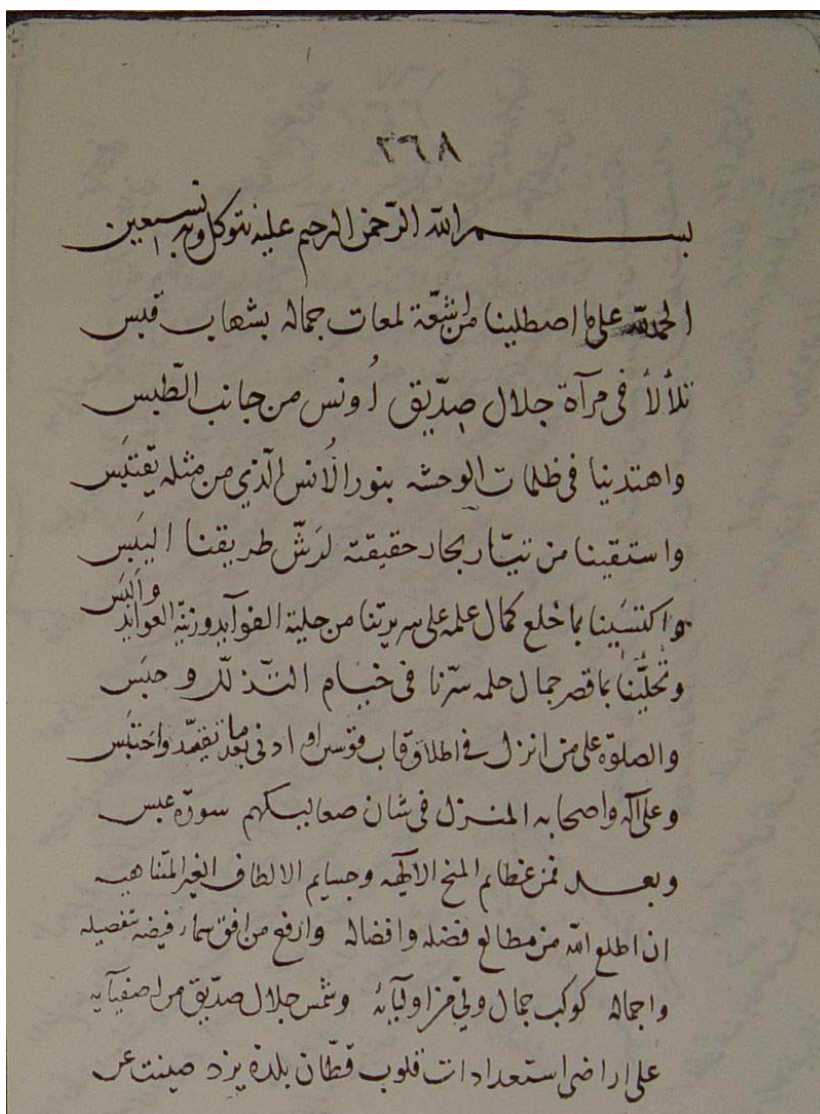 ٣٦٨
بسم الله الرحمن الرحيم عليه نتوكل وبه نستعين
الحمد لله على ما اصطلينا من اشعّة لمعات جماله بشهاب قبس
تلألأ فى مرآة جلال صدّيق اُونس من جانب الطّبس
واهتدينا فى ظلمات الوحشه بنور الاُنس الّذي من مثله يقتبَس
واستقينا من تيّار بحار حقيقته لرَشّ طريقنا اليبَس
واكتسَينا بما خلع كمال علمه على سريرتنا من حلية الفوآيد وزينة العوايد والبَس
وتحلّينا بما قصر جمال حلمه سرّنا فى خيام التذلّل وحبَس
والصلوة على من انزل فى اطلاق قاب قوسين او ادنى بعد ما تقيّد واحتبَس
وعلى آله واصحابه المنزل فى شان صعاليكهم سورة عبس
وبعد فمن عظايم المنح الالٓهيّه وجسايم الالطاف الغير المتناهيه
ان اطلع الله من مطالع فضله وافضاله وارفع من افق سمآء فيضه بتفصيله
واجماله كوكب جمال وليّ من اوليآئه وشمس جلال صدّيق من اصفيآيه
على اراضى استعدادات قلوب قطّان بلدة يزد صينت عن